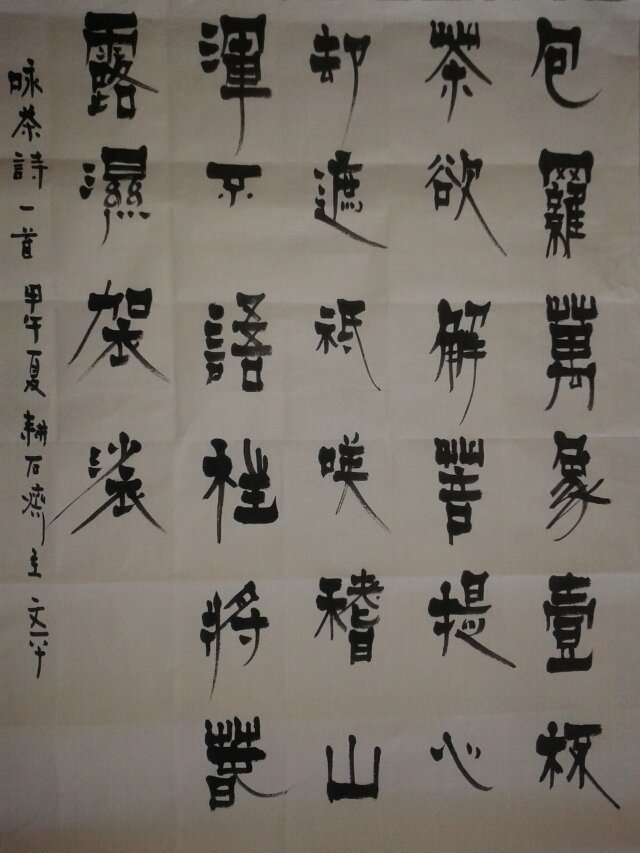 包羅萬象壹杯
茶欲解菩提心
却遮祗嘆稽山
渾不語枉將暮
露濕袈裟
咏茶詩一首 甲午夏 耕石齋主 文